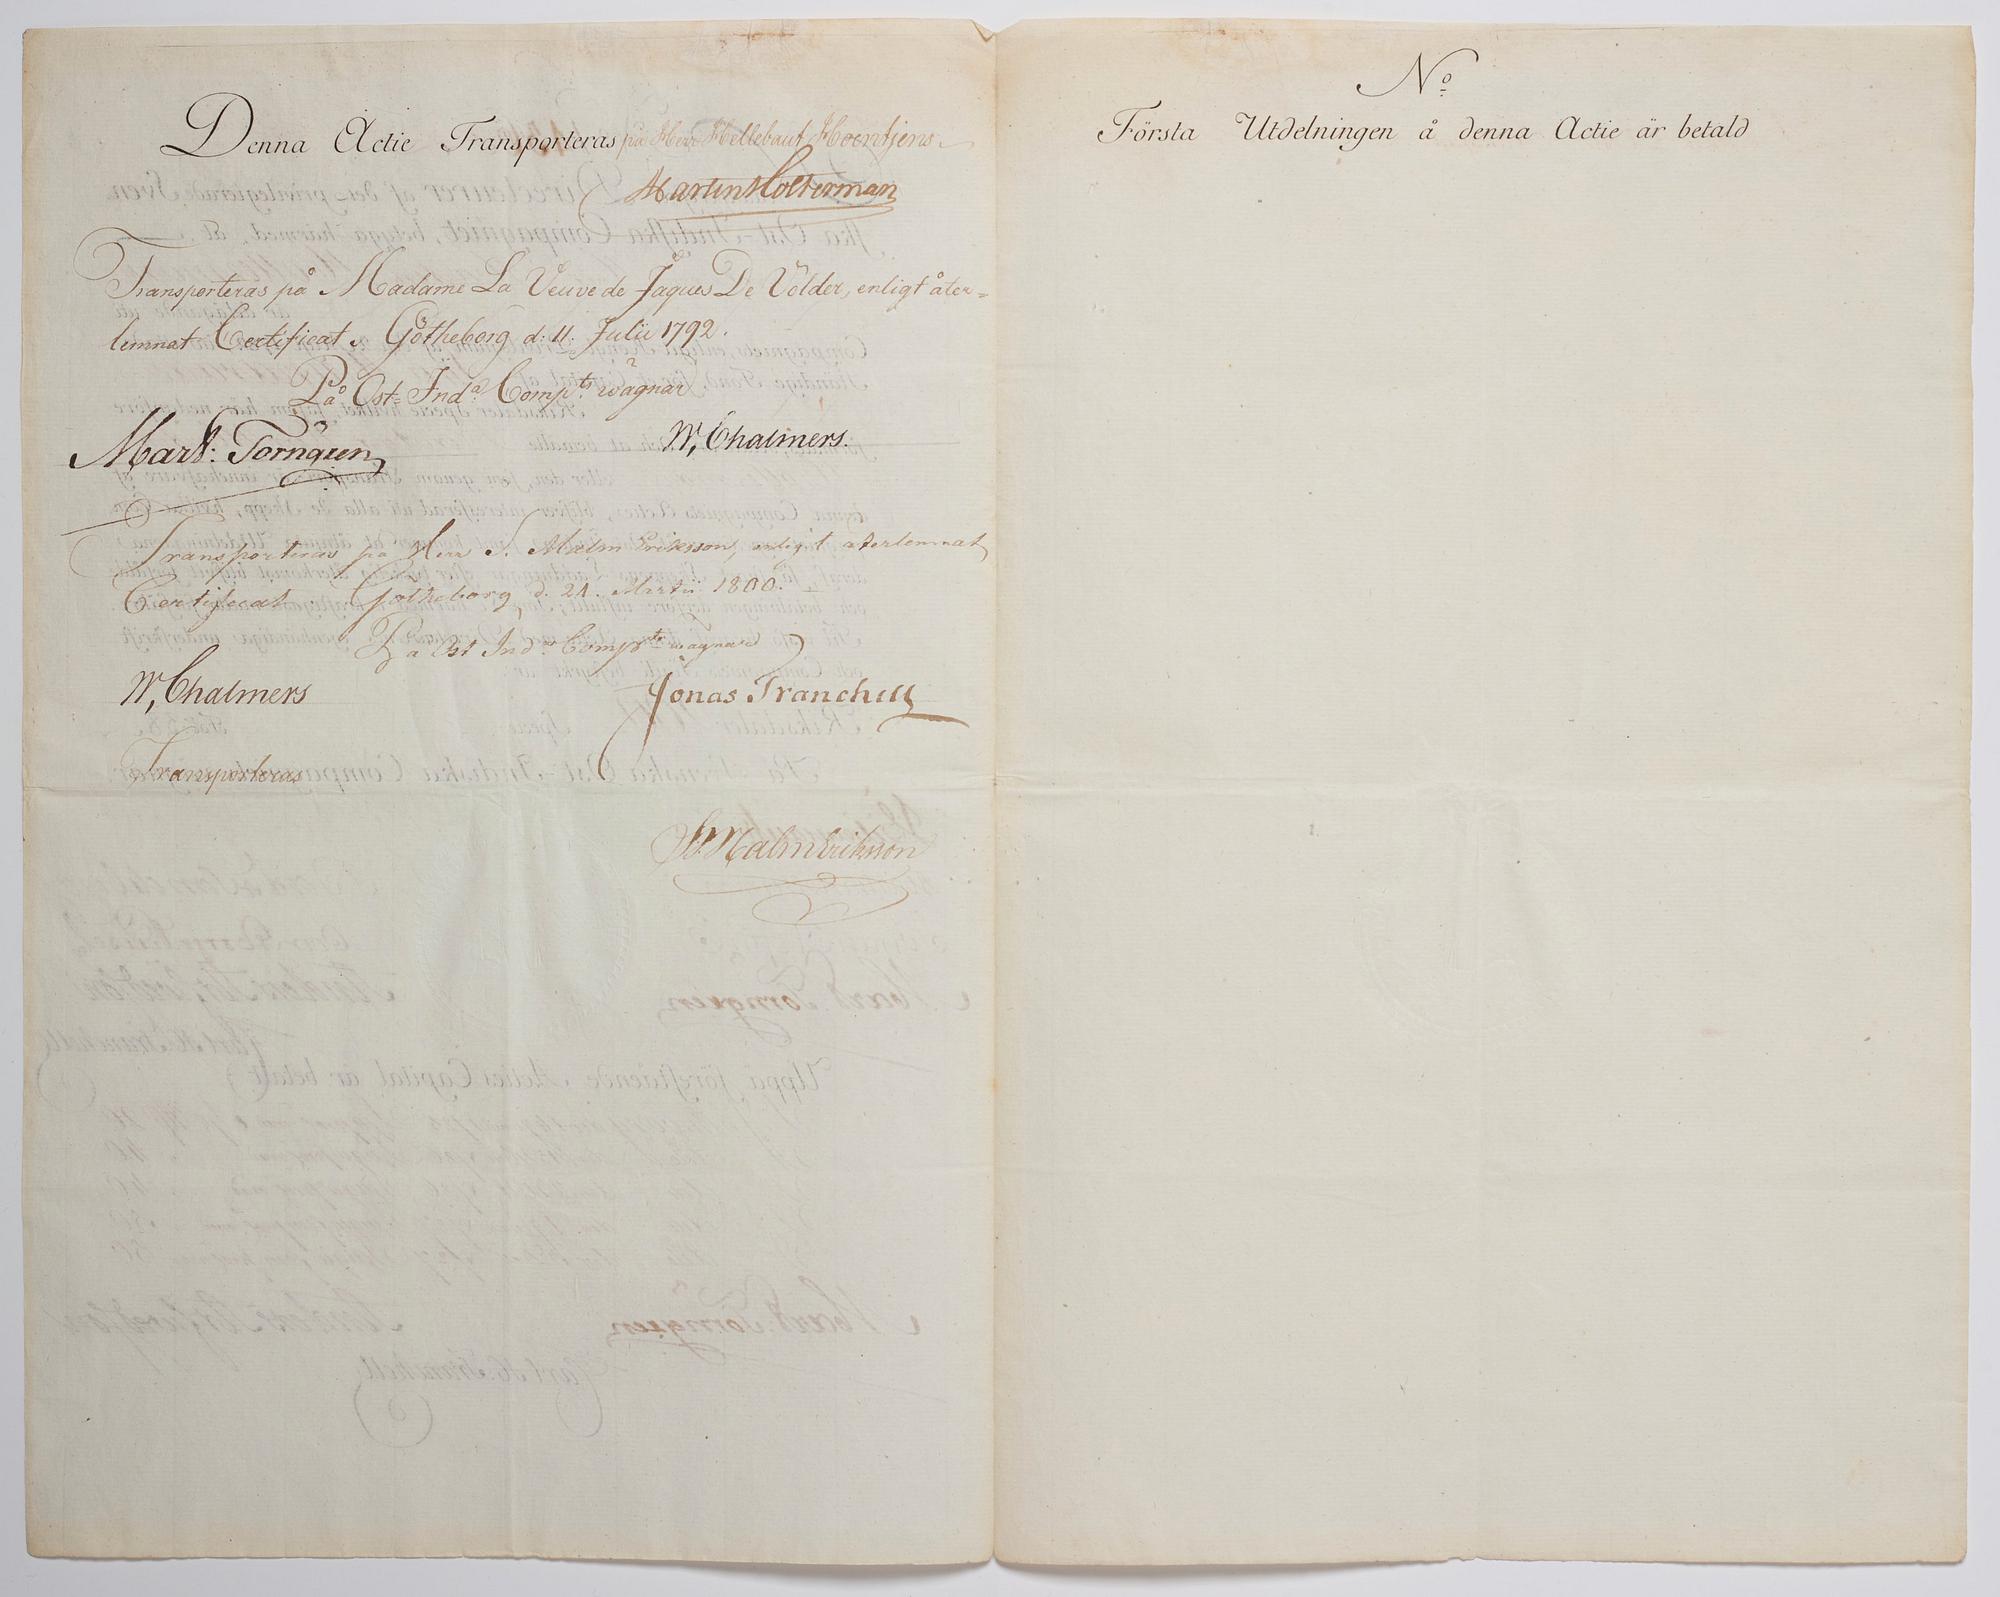 Denna Actie Transporteras på Herr Hellebaut Hoentjens
Martin Holterman
Transporteras på Madame La Veuve de Jaques De Völder, enligt åter=
lemnat Certificat. Götheborg d: 11. Julii 1792.
På Ost-Inda Compts wägnar
Mart: Törngren
Wm Chalmers.
Transporteras på Herr S. Malm Eriksson, enligt återlemnat
Certificat. Götheborg d. 21. Martii 1800.
På Ost Inda Compts wägnar
Wm Chalmers
Jonas Tranchell
Transporteras
S. Malm Eriksson
No
Första Utdelningen å denna Actie är betald